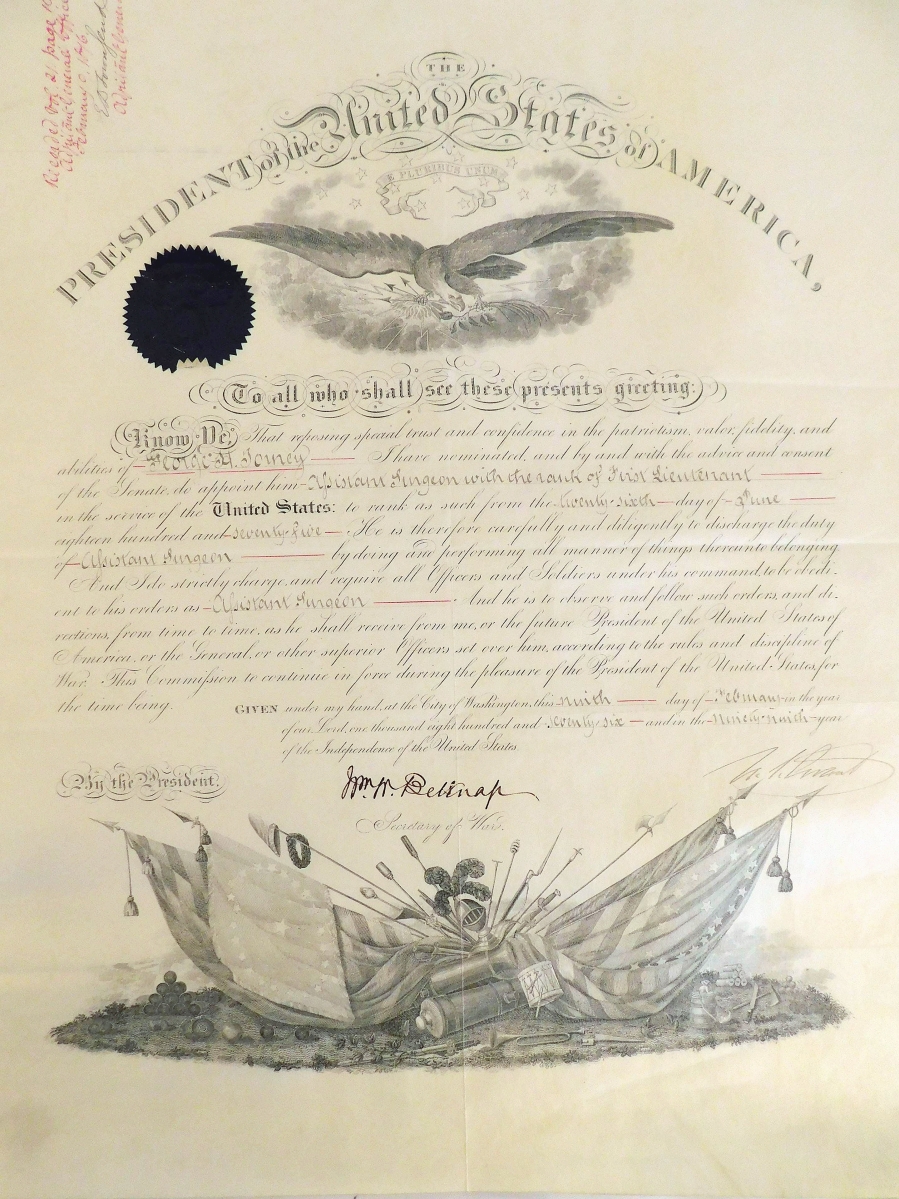 Recorded Vol. 21, page
Adjutant General's Office
February 9, 1876
E D Townsend
Adjutant General
THE
PRESIDENT of the United States of AMERICA,
E PLURIBUS UNUM
To all who shall see these presents greeting:
Know Ye, That reposing special trust and confidence in the patriotism, valor, fidelity, and
abilities of George H. Torney I have nominated, and by and with the advice and consent
of the Senate, do appoint him Assistant Surgeon with the rank of First Lieutenant
in the service of the United States: to rank as such from the twenty-sixth day of June
eighteen hundred and seventy-five He is therefore carefully and diligently to discharge the duty
of Assistant Surgeon by doing and performing all manner of things thereunto belonging.
And I do strictly charge, and require all Officers and Soldiers under his command, to be obedi-
ent to his orders as Assistant Surgeon And he is to observe and follow such orders, and di-
rections, from time to time, as he shall receive from me, or the future President of the United States of
America, or the General, or other superior Officers set over him, according to the rules and discipline of
War. This Commission to continue in force during the pleasure of the President of the United States, for
the time being.
GIVEN under my hand, at the City of Washington, this ninth day of February in the year
of our Lord, one thousand eight hundred and seventy-six and in the Ninety-ninth year
of the Independence of the United States.
By the President.
U. S. Grant
Wm. W. Belknap
Secretary of War.